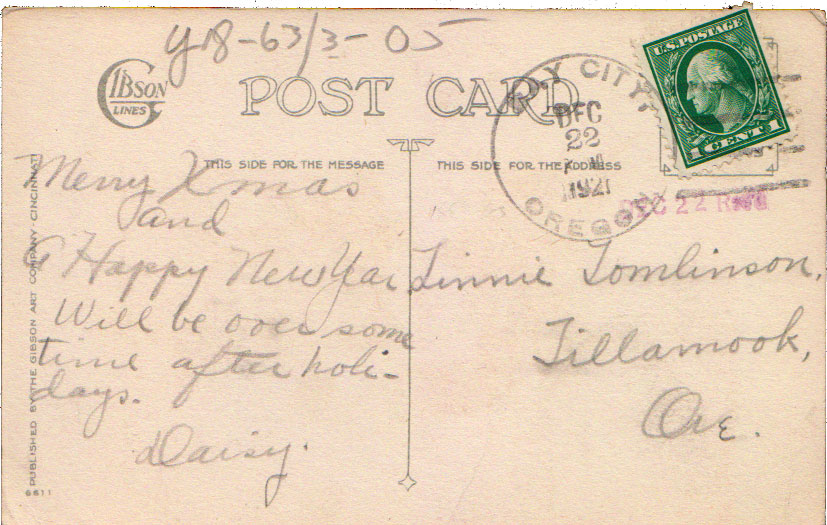 Y18-63/3-05
GIBSON
LINES
POST CARD
U.S. POSTAGE
1 CENT 1
CITY,
DEC
22
M
1921
OREGON
DEC 22 REC'D
THIS SIDE FOR THE MESSAGE
THIS SIDE FOR THE ADDRESS
Merry Xmas
and
A Happy New Year
Will be over some
time after holi-
days.
Daisy.
Linnie Tomlinson,
Tillamook,
Ore.
PUBLISHED BY THE GIBSON ART COMPANY-CINCINNATI
6611